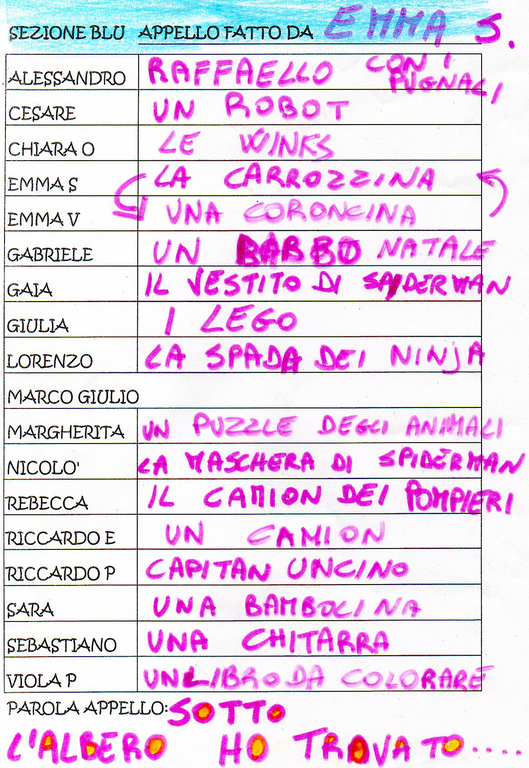 SEZIONE BLU APPELLO FATTO DA EMMA S.
ALESSANDRO RAFFAELLO CON I PUGNALI
CESARE UN ROBOT
CHIARA O LE WINKS
EMMA S LA CARROZZINA
EMMA V UNA CORONCINA
GABRIELE UN BABBO NATALE
GAIA IL VESTITO DI SPIDERMAN
GIULIA I LEGO
LORENZO LA SPADA DEI NINJA
MARCO GIULIO
MARGHERITA UN PUZZLE DEGLI ANIMALI
NICOLO' LA MASCHERA DI SPIDERMAN
REBECCA IL CAMION DEI POMPIERI
RICCARDO E UN CAMION
RICCARDO P CAPITAN UNCINO
SARA UNA BAMBOLINA
SEBASTIANO UNA CHITARRA
VIOLA P UN LIBRO DA COLORARE
PAROLA APPELLO: SOTTO
L'ALBERO HO TROVATO....